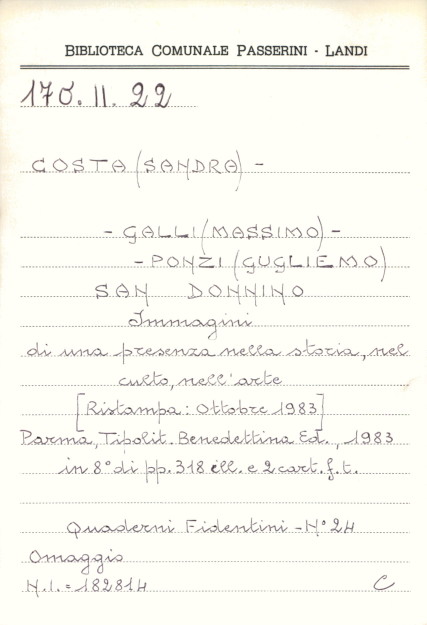 BIBLIOTECA COMUNALE PASSERINI - LANDI
170.II.22
COSTA (SANDRA) -
- GALLI (MASSIMO) -
- PONZI (GUGLIEMO)
SAN DONNINO
Immagini
di una presenza nella storia, nel
culto, nell'arte
[Ristampa: Ottobre 1983]
Parma, Tipolit. Benedettina Ed., 1983
in 8° di pp. 318 ill. e 2 cart. f. t.
Quaderni Fidentini - N° 24
Omaggio
N.I. = 182814
C